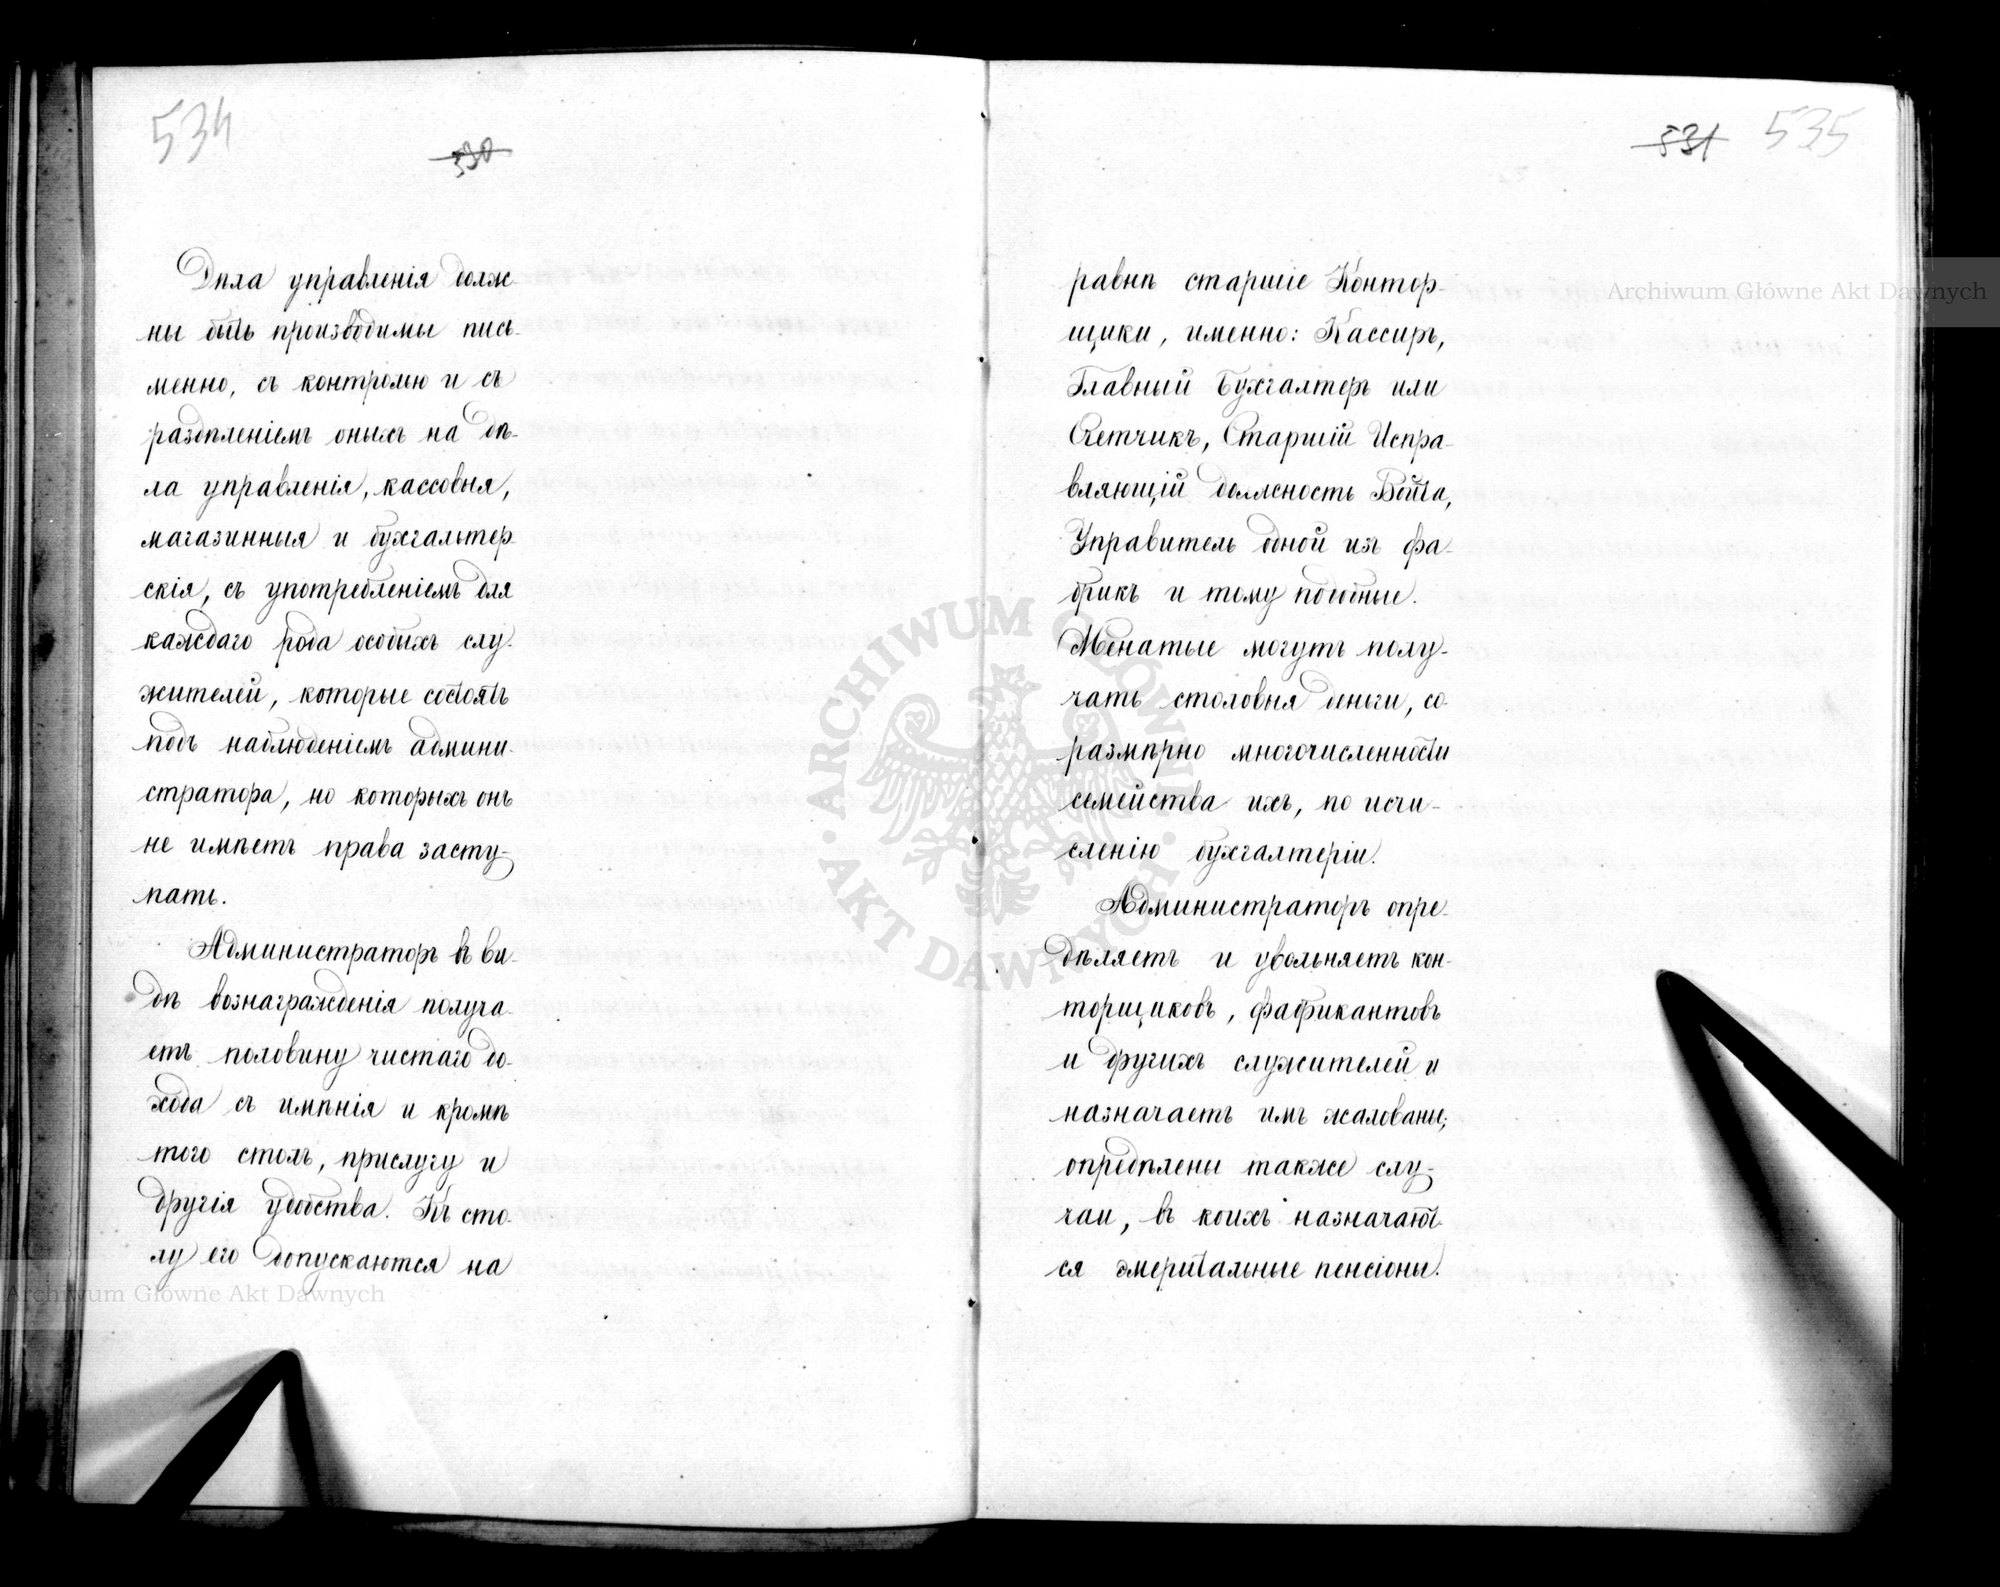 534
530
Дѣла управленія долж-
ны быть производимы пись-
менно, съ контролю и съ
раздѣленіемъ оныхъ на дѣ-
ла управленія, кассовыя,
магазинныя и бухгальтер-
скія, съ употребленіемъ для
каждаго рода особыхъ слу-
жителей, которые состоятъ
подъ наблюденіемъ админи-
стратора, но которыхъ онъ
не имѣетъ права засту-
пать.
Администраторъ въ ви-
дѣ вознагражденія получа-
етъ половину чистаго до-
хода съ имѣнія и кромѣ
того столъ, прислугу и
другія удобства. Къ сто-
лу его допускаются на
531 535
равнѣ старшіе Контор-
щики, именно: Кассиръ,
Главный Бухгалтеръ или
Счетчикъ, Старшій Испра-
вляющій должность Войта,
Управитель одной изъ фа-
брикъ и тому подобные.
Женатые могутъ полу-
чать столовыя деньги, со-
размѣрно многочисленности
семейства ихъ, по исчи-
сленію бухгалтеріи.
Администраторъ опре-
дѣляетъ и увольняетъ кон-
торщиковъ, фабрикантовъ
и другихъ служителей и
назначаетъ имъ жалованье;
опредѣлены также слу-
чаи, въ коихъ назначают-
ся эмеритальные пенсіоны.
Archiwum Główne Akt Dawnych
Archiwum Główne Akt Dawnych
ARCHIWUM GŁÓWNE AKT DAWNYCH